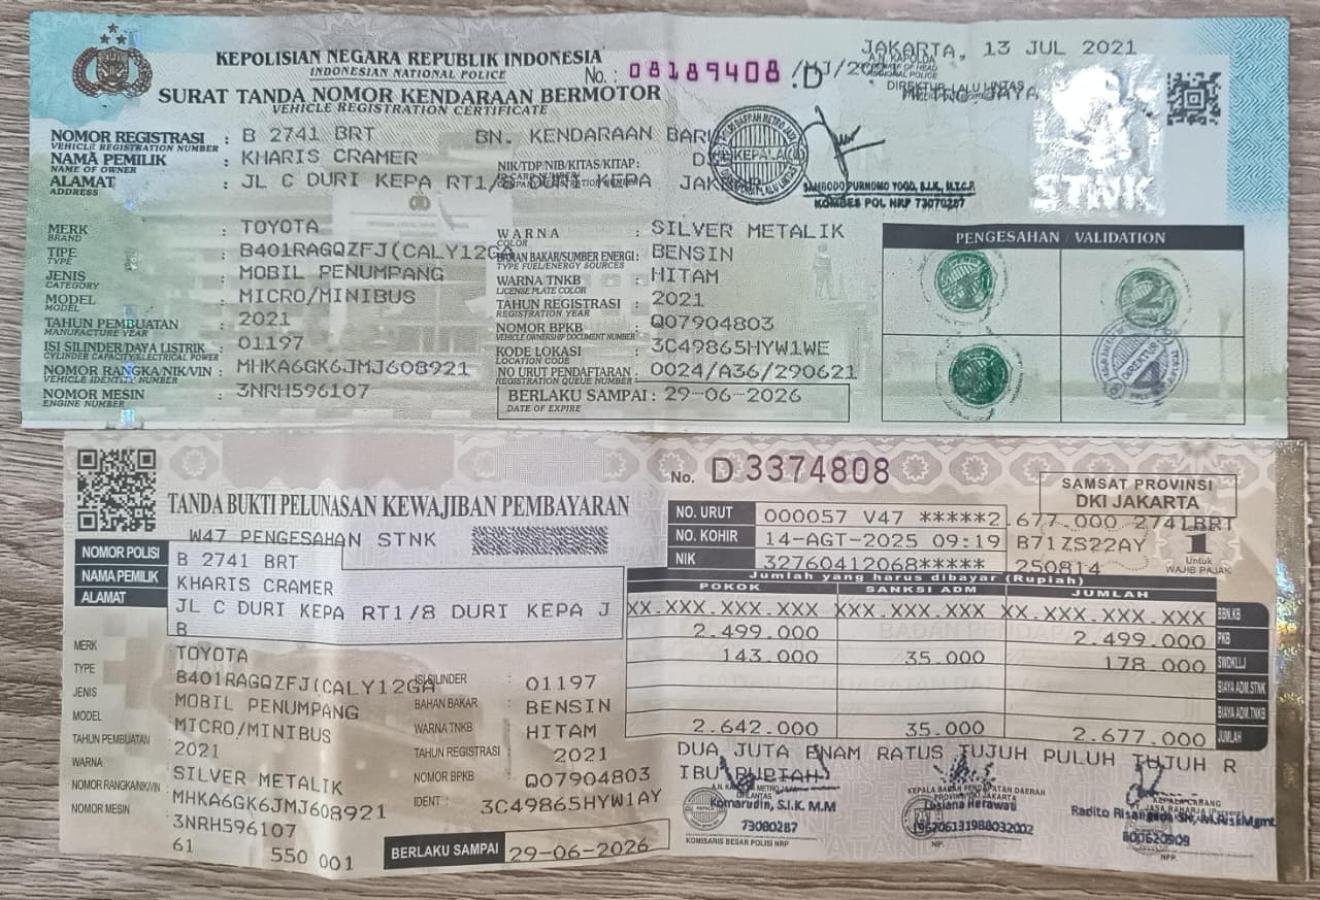 KEPOLISIAN NEGARA REPUBLIK INDONESIA
INDONESIAN NATIONAL POLICE
SURAT TANDA NOMOR KENDARAAN BERMOTOR
VEHICLE REGISTRATION CERTIFICATE
No. : 08189408 /MJ/20 .D
JAKARTA, 13 JUL 2021
A.N. KAPOLDA
METRO JAYA
DIREKTUR LALU LINTAS
KEPALA
KOMBES POL NRP 73070287
STNK
NOMOR REGISTRASI : B 2741 BRT BN. KENDARAAN BARU
VEHICLE REGISTRATION NUMBER
NAMA PEMILIK : KHARIS CRAMER NIK/TDP/NIB/KITAS/KITAP:
NAME OF OWNER
ALAMAT : JL C DURI KEPA RT1/8 DURI KEPA
ADDRESS
MERK : TOYOTA
BRAND
TIPE : B401RAGQZFJ(CALY12GA
TYPE
JENIS : MOBIL PENUMPANG
CATEGORY
MODEL : MICRO/MINIBUS
MODEL
TAHUN PEMBUATAN : 2021
MANUFACTURE YEAR
ISI SILINDER/DAYA LISTRIK : 01197
CYLINDER CAPACITY/ELECTRICAL POWER
NOMOR RANGKA/NIK/VIN : MHKA6GK6JMJ608921
VEHICLE IDENTITY NUMBER
NOMOR MESIN : 3NRH596107
ENGINE NUMBER
WARNA : SILVER METALIK
COLOR
BAHAN BAKAR/SUMBER ENERGI : BENSIN
TYPE FUEL/ENERGY SOURCES
WARNA TNKB : HITAM
LICENSE PLATE COLOR
TAHUN REGISTRASI : 2021
REGISTRATION YEAR
NOMOR BPKB : Q07904803
VEHICLE OWNERSHIP DOCUMENT NUMBER
KODE LOKASI : 3C49865HYW1WE
LOCATION CODE
NO URUT PENDAFTARAN : 0024/A36/290621
REGISTRATION QUEUE NUMBER
BERLAKU SAMPAI : 29-06-2026
DATE OF EXPIRE
PENGESAHAN / VALIDATION
2
DIREKTUR
4
TANDA BUKTI PELUNASAN KEWAJIBAN PEMBAYARAN
No. D 3374808
SAMSAT PROVINSI
DKI JAKARTA
W47 PENGESAHAN STNK
NO. URUT 000057 V47 *****2.677.000 2741BRT
NO. KOHIR 14-AGT-2025 09:19 B71ZS22AY
NIK 32760412068***** 250814
1
Untuk
WAJIB PAJAK
NOMOR POLISI B 2741 BRT
NAMA PEMILIK KHARIS CRAMER
ALAMAT JL C DURI KEPA RT1/8 DURI KEPA J
B
MERK TOYOTA
TYPE B401RAGQZFJ(CALY12GA
JENIS MOBIL PENUMPANG
MODEL MICRO/MINIBUS
TAHUN PEMBUATAN 2021
WARNA SILVER METALIK
NOMOR RANGKA/NIK/VIN MHKA6GK6JMJ608921
NOMOR MESIN 3NRH596107
61 550 001
ISI SILINDER : 01197
BAHAN BAKAR : BENSIN
WARNA TNKB : HITAM
TAHUN REGISTRASI : 2021
NOMOR BPKB : Q07904803
IDENT : 3C49865HYW1AY
BERLAKU SAMPAI 29-06-2026
Jumlah yang harus dibayar (Rupiah)
POKOK SANKSI ADM JUMLAH
XX.XXX.XXX.XXX XXX.XXX.XXX XX.XXX.XXX.XXX BBN.KB
2.499.000 2.499.000 PKB
143.000 35.000 178.000 SWDKLLJ
BIAYA ADM.STNK
BIAYA ADM.TNKB
2.642.000 35.000 2.677.000 JUMLAH
DUA JUTA ENAM RATUS TUJUH PULUH TUJUH R
IBU RUPIAH
Komarudin, S.I.K. M.M
73080287
KOMISARIS BESAR POLISI NRP
KEPALA BADAN PENDAPATAN DAERAH
PROVINSI DKI JAKARTA
Lusiana Herawati
196706131988032002
NIP.
KEPALA CABANG
Radito
800620909
NPP.